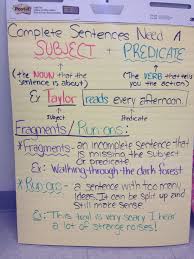 Post-it
Complete Sentences Need A
SUBJECT + PREDICATE
(the NOUN that the sentence is about) (the VERB that tells you the action)
Ex: Taylor reads every afternoon.
Subject Predicate
Fragments/Run ons:
*Fragments- an incomplete sentence that
is missing the subject
or predicate
Ex: Walking through the dark forest
*Run ons - a sentence with too many
ideas. It can be split up and
still make sense
Ex: This trail is very scary I hear
a lot of strange noises!